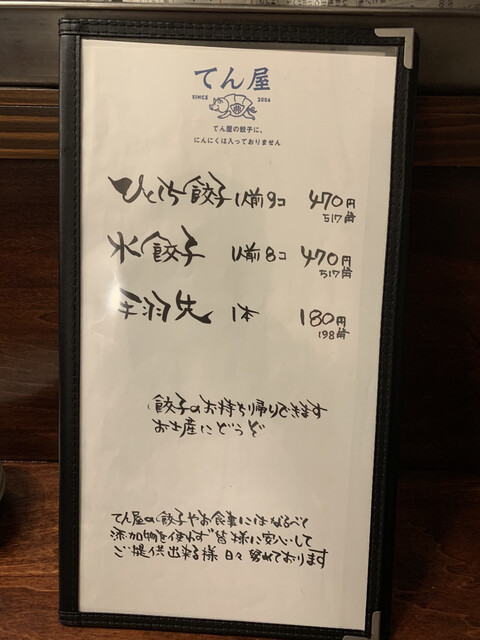 てん屋
SINCE 2006
てん屋の餃子に、
にんにくは入っておりません
ひとくち餃子 1人前9コ 470円
517円
水餃子 1人前8コ 470円
517円
手羽先 1本 180円
198円
餃子のお持ち帰りできます
お土産にどうぞ
てん屋の餃子やお食事にはなるべく
添加物を使わず皆様に安心して
ご提供出来る様日々努めております